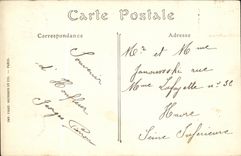 Carte Postale
Correspondance
Adresse
Souvenir
d'Honfleur
Georges
Mr et Mme
rue
Mme Lafayette n° 32
Havre
Seine Inférieure